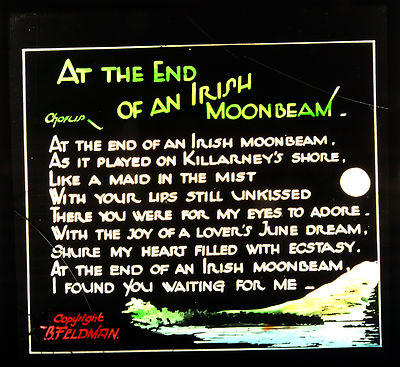 At the End
of an Irish
Moonbeam.
Chorus
At the end of an Irish moonbeam,
As it played on Killarney's shore,
Like a maid in the mist
With your lips still unkissed
There you were for my eyes to adore.
With the joy of a lover's June dream,
Shure my heart filled with ecstasy.
At the end of an Irish moonbeam,
I found you waiting for me —
Copyright
B. Feldman.